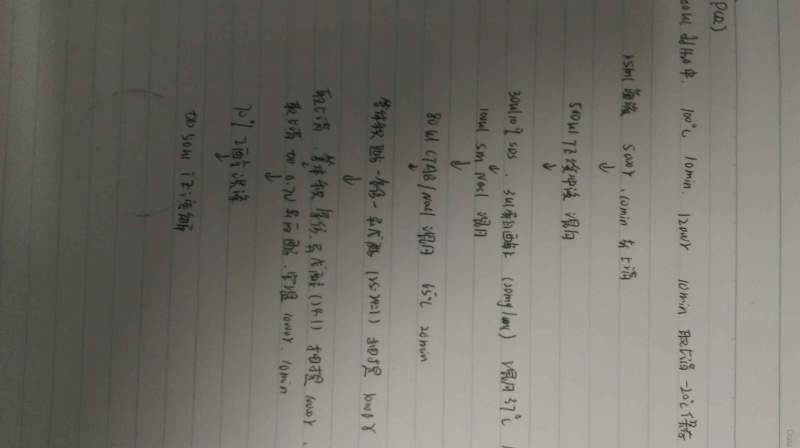 P(02)
00ul ddH2O中. 100℃ 10min. 1200r 10min 取上清 -20℃保存
1.5ml 菌液 5000r. 10min 弃上清
↓
500ul TE缓冲液 混匀
↓
30ul 10% SDS. 3ul 蛋白酶K (20mg/ml) 混匀 37℃
↓
100ul 5M NaCl 混匀
↓
80ul CTAB/NaCl 混匀 65℃ 20min
↓
等体积 酚-氯仿-异戊醇 (25:24:1) 抽提 1000r
↓
取上清. 等体积 氯仿 异戊醇 (24:1) 抽提 1000r.
↓
取上清 加 0.7V 异丙醇. 室温 10000r. 10min
↓
70% 乙醇 洗涤
↓
加 50ul TE 溶解